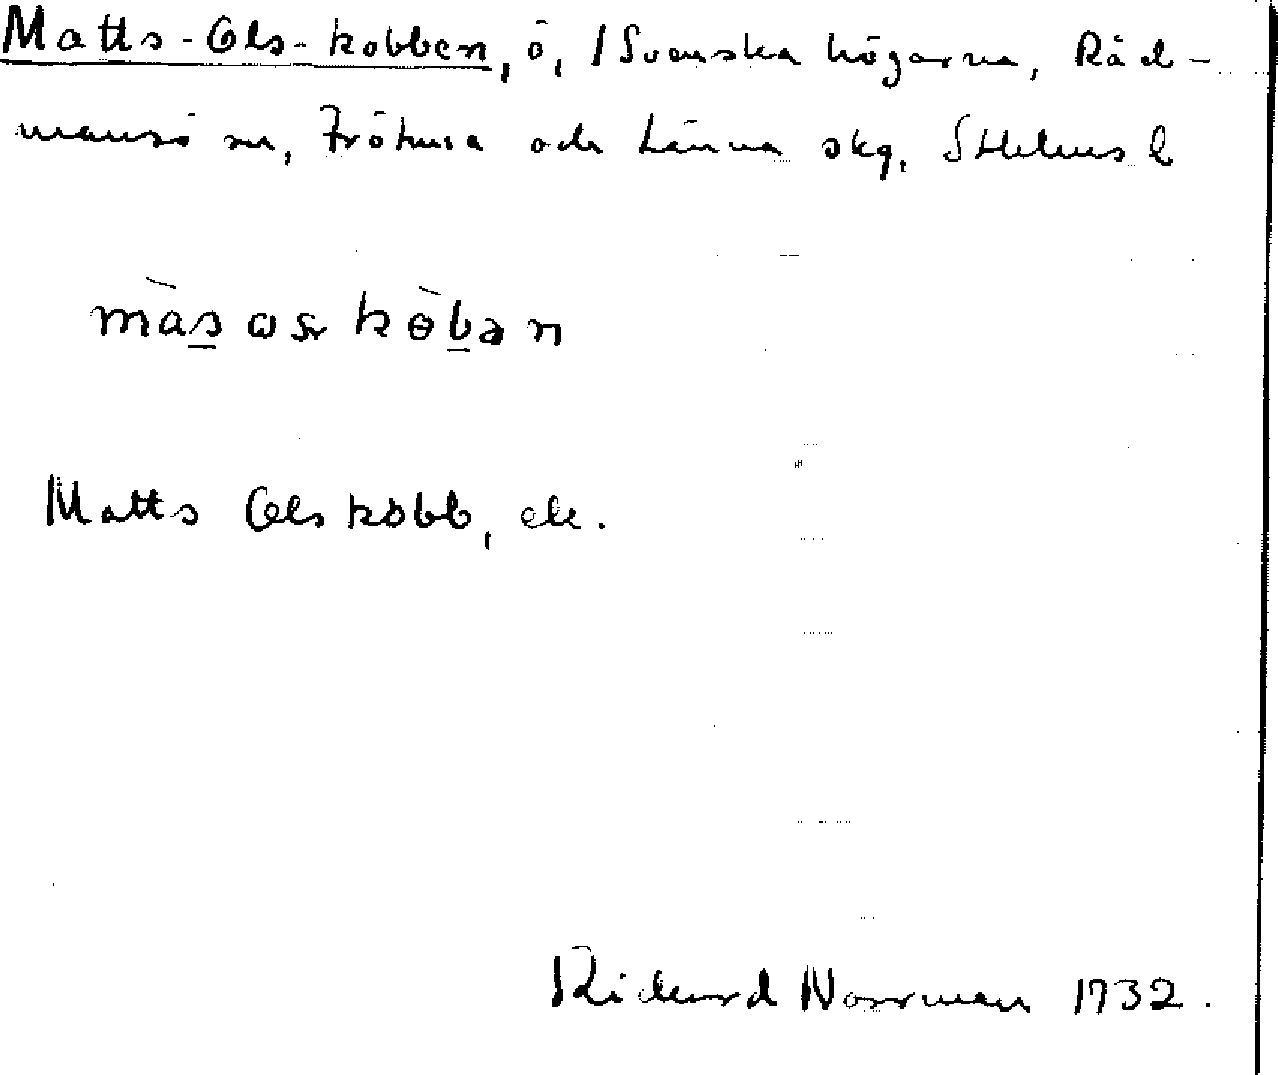 Matts-Ols-kobben, ö, i Svenska högarna, Råd-
mansö sn, Frötuna och Länna skg, Sthlms l
Matts Ols kobb, ek.
Rickard Norrman 1932.